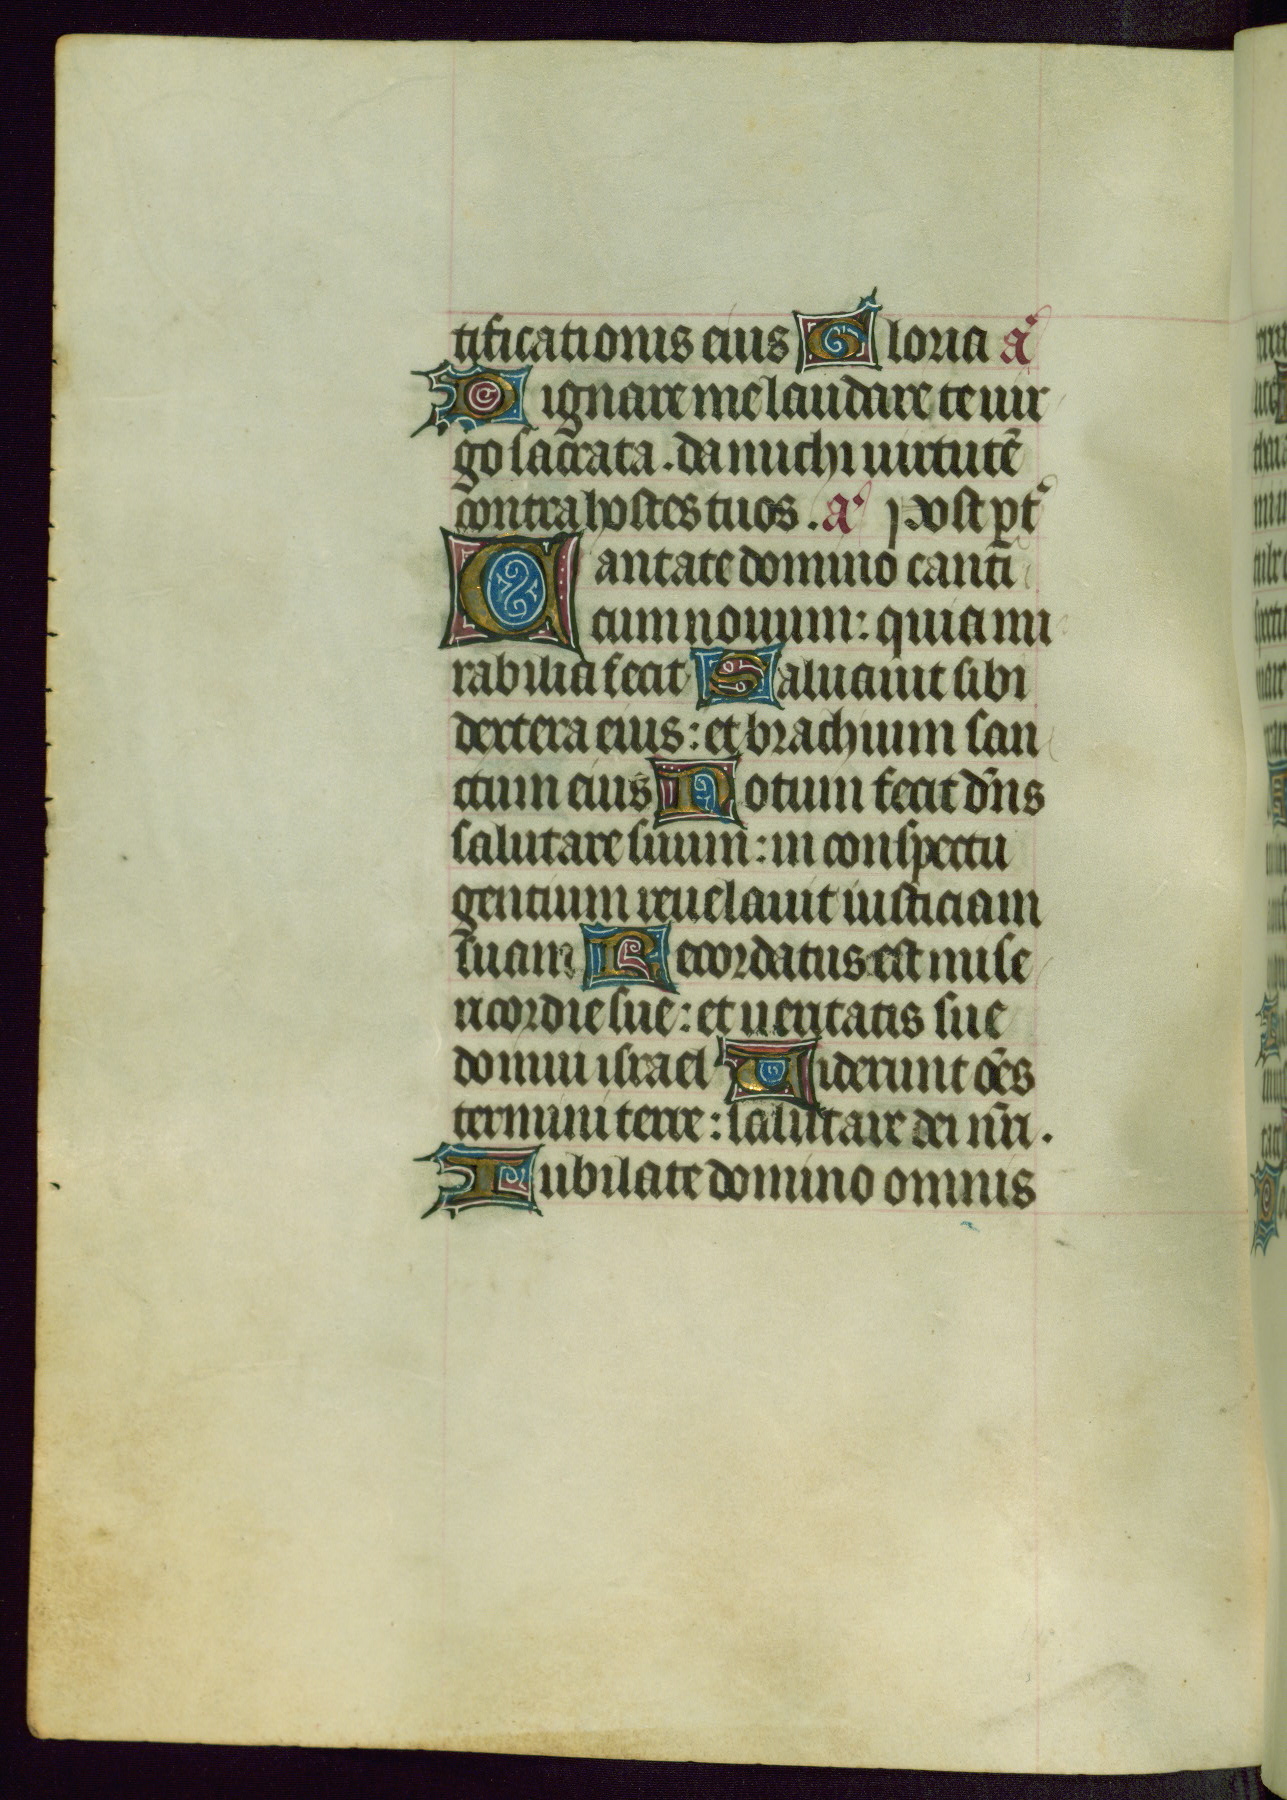 tificationis eius Gloria a᷎
Dignare me laudare te uir
go sacrata . da michi uirtutē
contra hostes tuos . a᷎ post pt᷎
Cantate domino canti
cum nouum : quia mi
rabilia fecit Saluauit sibi
dextera eius : et brachium san
ctum eius Notum fecit dn̄s
salutare suum : in conspectu
gentium reuelauit iusticiam
suam Recordatus est mise
ricordie sue : et ueritatis sue
domui israel Uiderunt oēs
termini terre : salutare dei nr̄i .
Iubilate domino omnis